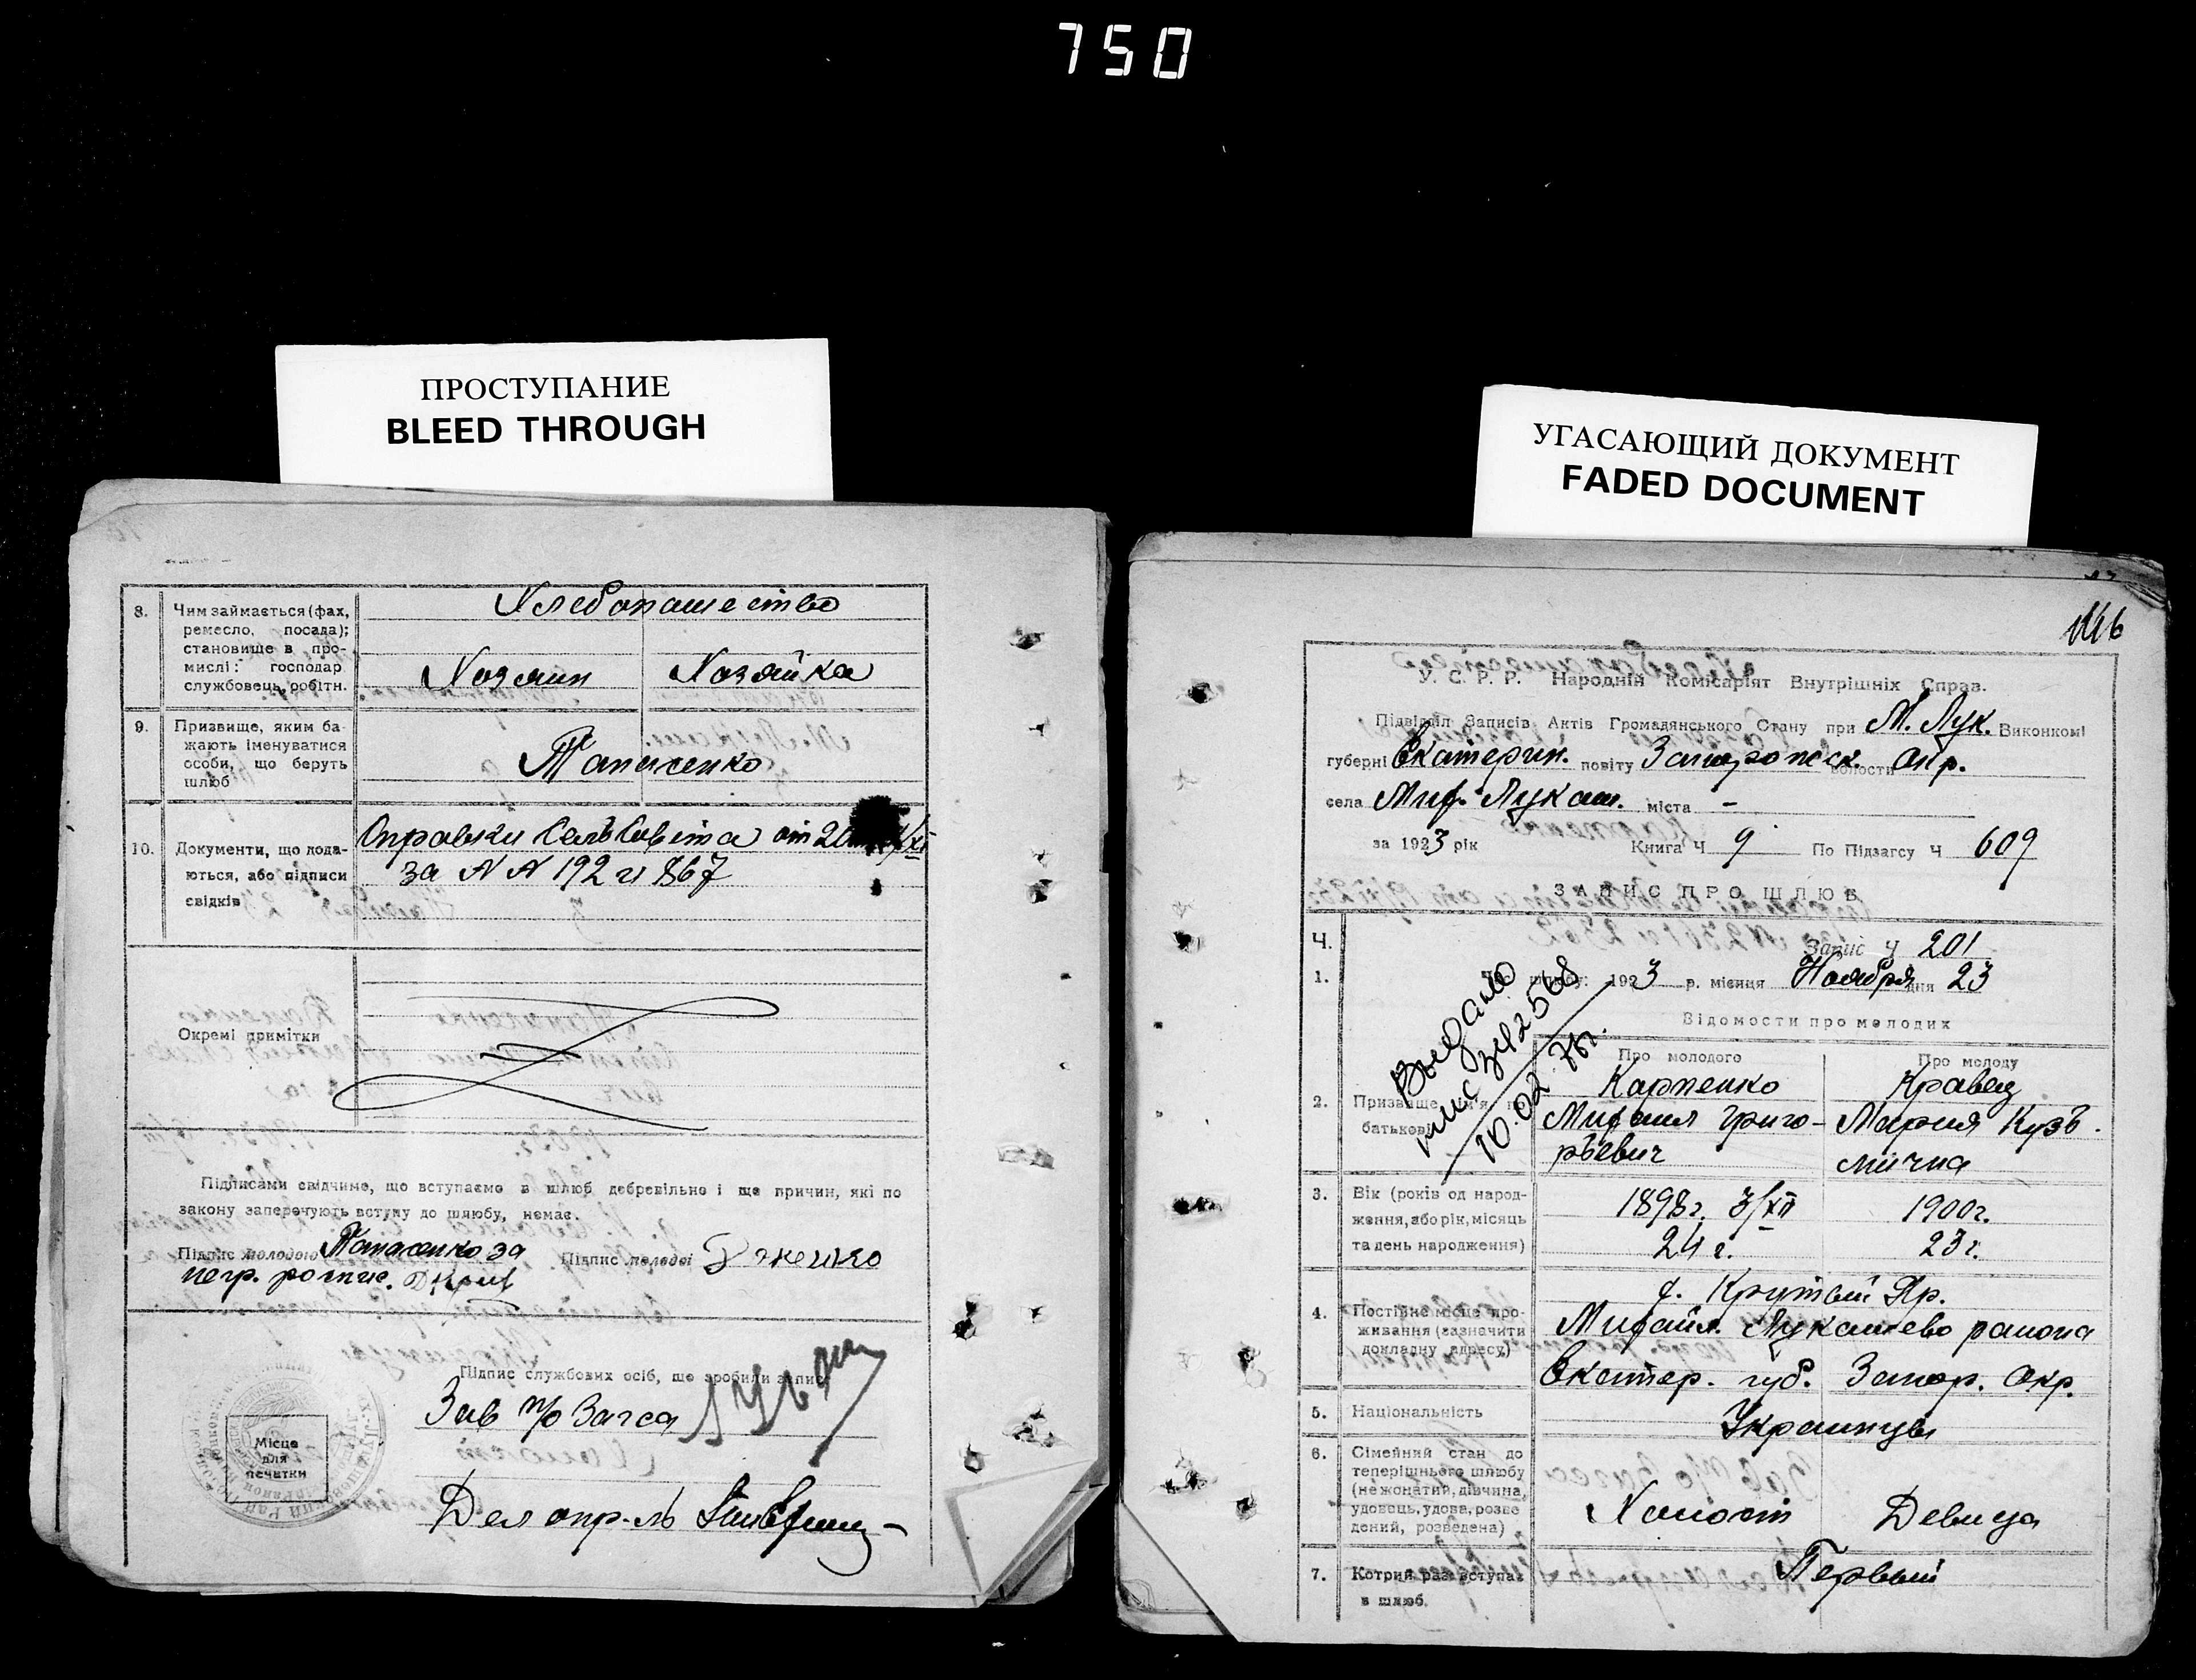 750
ПРОСТУПАНИЕ
BLEED THROUGH
8. Чим займається (фах,
ремесло, посада);
становище в про-
мислі: господар
службовець, робітн.
Хлебопашество
Хозяин Хозяйка
9. Призвище, яким ба-
жають іменуватися
особи, що беруть
шлюб
Папасенко
10. Документи, що пода-
ються, або підписи
свідків
Справки Сельсовета от 20 /XI
за № № 192 и 867
Окремі примітки
Підписами свідчимо, що вступаємо в шлюб добревільно і ще причин, які по
закону заперечують вступу до шлюбу, немає.
Підпис молодого Папасенко за
негр. роспис.
Підпис молодої
Підпис службових осіб, що зробили запис
Зав п/о Загса
Місце
для
печатки
Делопр-ль
УГАСАЮЩИЙ ДОКУМЕНТ
FADED DOCUMENT
У. С. Р. Р. Народній Комісаріят Внутрішніх Справ.
Підвідділ Записів Актів Громадянського Стану при М. Лук. Виконкомі
губерні Екатерин. повіту Запорожск. волости Окр.
села Мих-Лукаш. міста –
за 1923 рік Книга Ч 9 По Підзагсу Ч 609
ЗАПИС ПРО ШЛЮБ
Ч. Запис Ч 201
1. шлюбу: 1923 р. місяця Ноября дня 23
Выдано
10.02.
Відомости про молодих
Про молодого Про молоду
2. Призвище, ім'я, по
батькові
Карпенко Кравец
Михаил Григо- Мария Кузь
рьевич мична
3. Вік (років од народ-
ження, або рік, місяць
та день народження)
1898г. 3/XII 1900г.
24 г. 23 г.
4. Постійне місце про-
живання (зазначити
докладну адресу)
с. Крутой Яр.
Михайл. Лукашево района
Екатер. губ. Запор. Окр.
5. Національність
Украинцы
6. Сімейний стан до
теперішнього шлюбу
(нежонатий, дівчина,
удовець, удова, розве
дений, розведена)
Холост Девица
7. Котрий раз вступає
в шлюб.
Первый